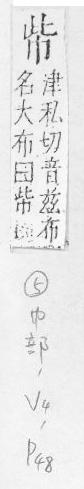 津私切音兹布
名大布曰
⑤ 巾部, V4, P48